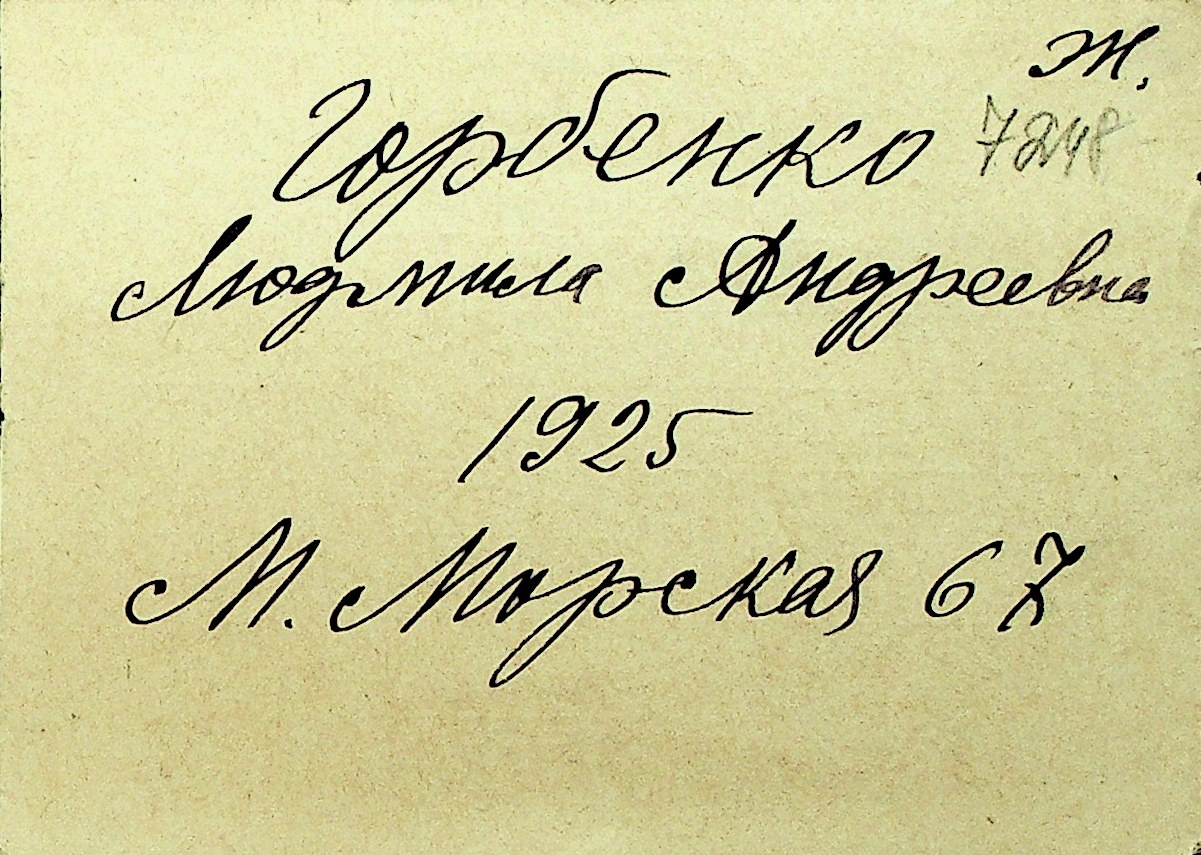 ж.
Горбенко 7248
Людмила Андреевна
1925
М. Морская 67